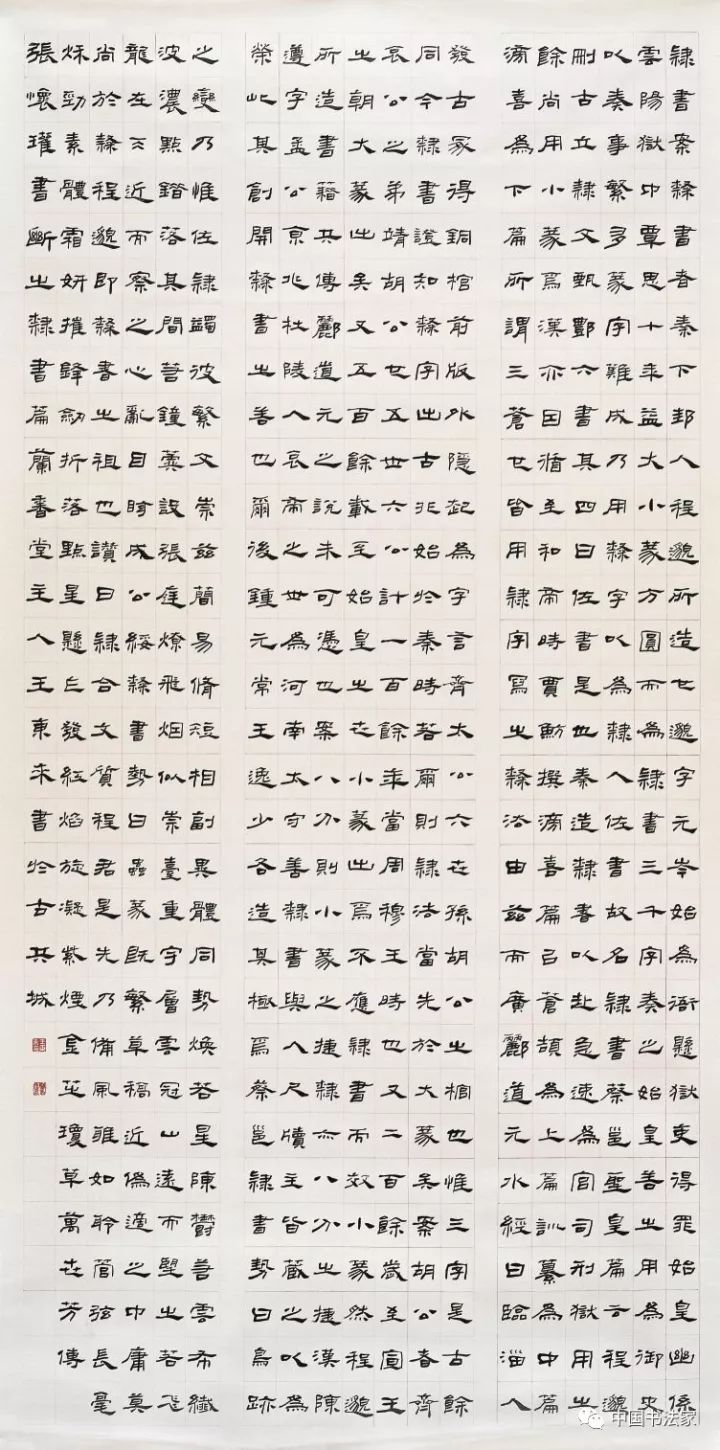 隸書案隸書者秦下邽人程邈所造也邈字元岑始為衙縣獄吏得罪始皇幽係
雲陽獄中覃思十年益大小篆方圓而為隸書三千字奏之始皇善之用為御史
以奏事繁多篆字難成乃用隸字以為隸人佐書故名隸書蔡邕聖皇篇云程邈
刪古立隸文甄酆六書其四曰佐書是也秦造隸書以赴急速為官司刑獄用之
餘尚用小篆焉漢亦因循至和帝時賈魴撰滂喜篇以蒼頡為上篇訓纂為中篇
滂喜為下篇所謂三蒼也皆用隸字寫之隸法由茲而廣酈道元水經曰臨淄人
發古冢得銅棺前版外隱起為字言齊太公六世孫胡公之棺也惟三字是古餘
同今隸書證知隸字出古非始於秦時若爾則隸法當先於大篆矣案胡公者齊
哀公之弟靖胡公也五世六公計一百餘年當周穆王時也又二百餘歲至宣王
之朝大篆出矣又五百餘載至始皇之世小篆出焉不應隸書而效小篆然程邈
所造書籍共傳酈道元之說未可憑也案八分則小篆之捷隸亦八分之捷漢陳
遵字孟公京兆杜陵人哀帝之世為河南太守善隸書與人尺牘主皆藏之以為
榮此其創開隸書之善也爾後鍾元常王逸少各造其極焉蔡邕隸書勢曰鳥跡
之變乃惟佐隸蠲彼繁文崇茲簡易脩短相副異體同勢煥若星陳鬱若雲布纖
波濃點錯落其間若鐘簴設張庭燎飛烟似崇臺重宇層雲冠山遠而望之若飛
龍在天近而察之心亂目眩成公綏隸書勢曰蟲篆既繁草稿近偽適之中庸莫
尚於隸程邈即隸書之祖也讚曰隸合文質程君是先乃備風雅如聆管弦長毫
秋勁素體霜妍摧鋒劍折落點星懸乍發紅焰旋凝紫煙金芝瓊草萬世芳傳
張懷瓘書斷之隸書篇蘭香堂主人王東來書於古共城
中国书法家